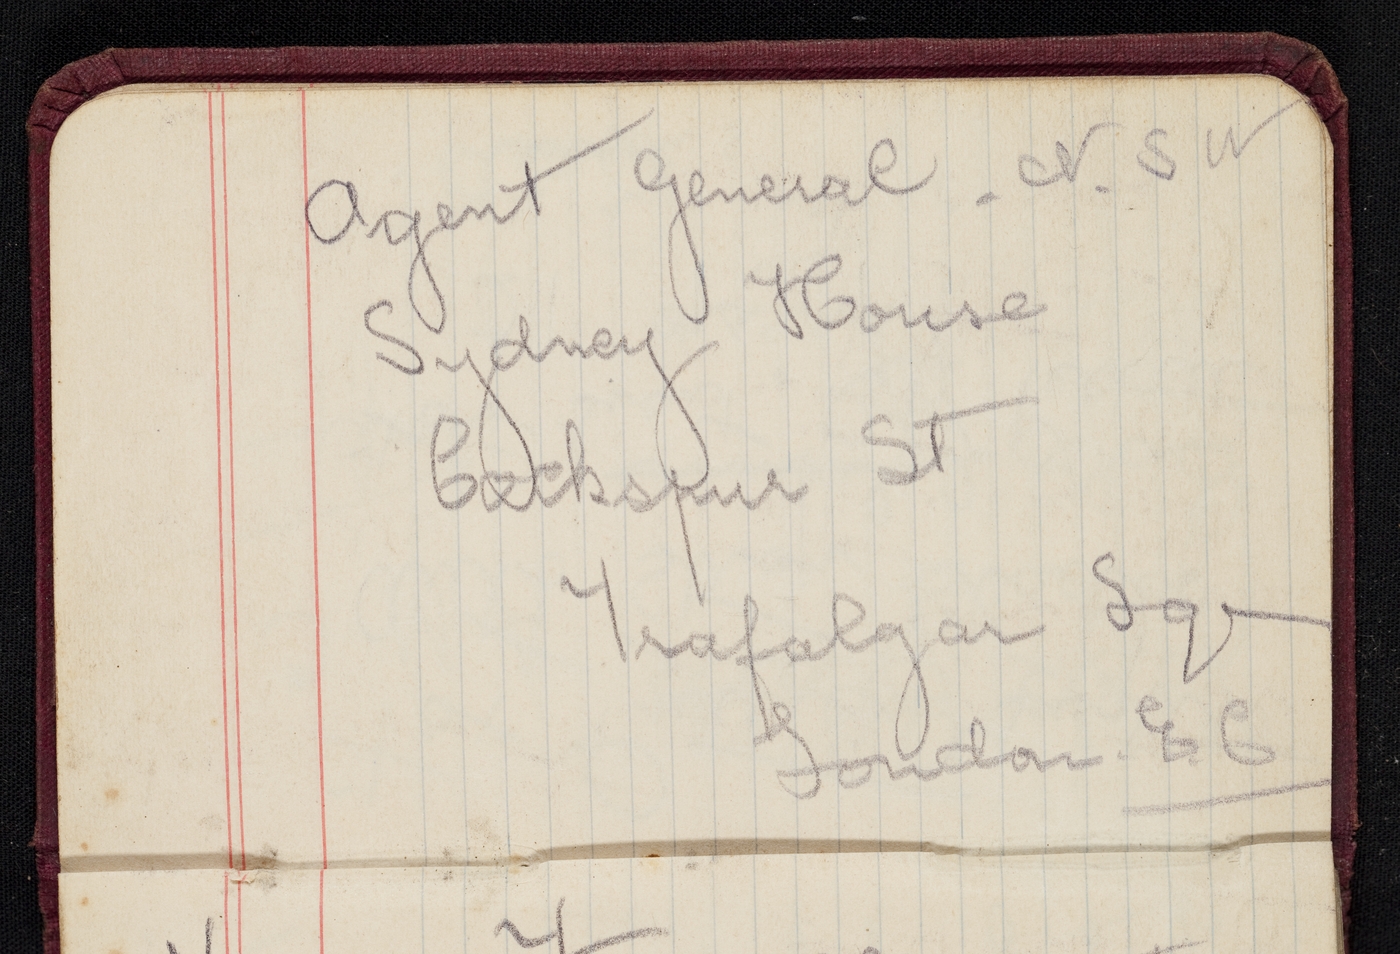 Agent General. N. S W
Sydney House
Cockspur St
Trafalgar Sqr
London. E. C